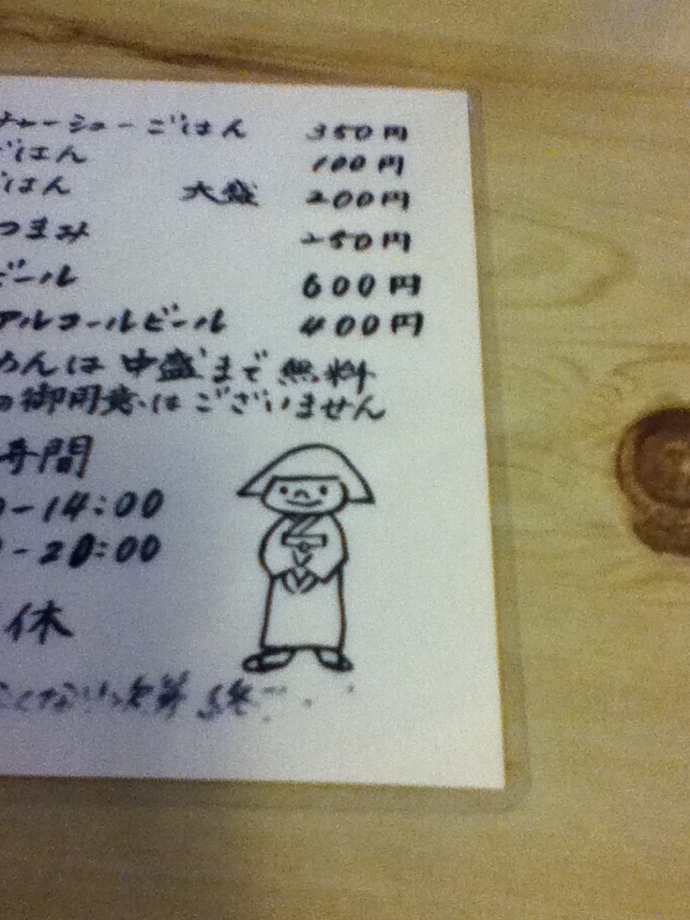 チャーシューごはん 350円
ごはん 100円
ごはん 大盛 200円
つまみ 250円
ビール 600円
アルコールビール 400円
めんは中盛まで無料
の御用意はございません
時間
-14:00
-20:00
休
なくなり次第 終